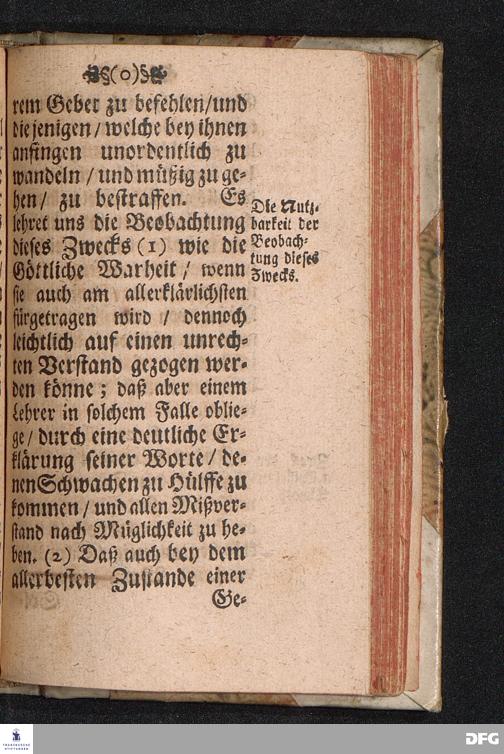 (o)
rem Geber zu befehlen/und
diejenigen/welche bey ihnen
anfingen unordentlich zu
wandeln/und müßig zu ge-
hen/ zu bestraffen. Es
lehret uns die Beobachtung
dieses Zwecks (1) wie die
Göttliche Warheit / wenn
sie auch am allerklärlichsten
fürgetragen wird / dennoch
leichtlich auf einen unrech-
ten Verstand gezogen wer-
den könne; daß aber einem
Lehrer in solchem Falle oblie-
ge/durch eine deutliche Er-
klärung seiner Worte/de-
nen Schwachen zu Hülffe zu
kommen/und allen Mißver-
stand nach Müglichkeit zu he-
ben. (2) Daß auch bey dem
allerbesten Zustande einer
Ge-
Die Nutz-
barkeit der
Beobach-
tung dieses
Zwecks.
FRANCKESCHE
STIFTUNGEN
DFG